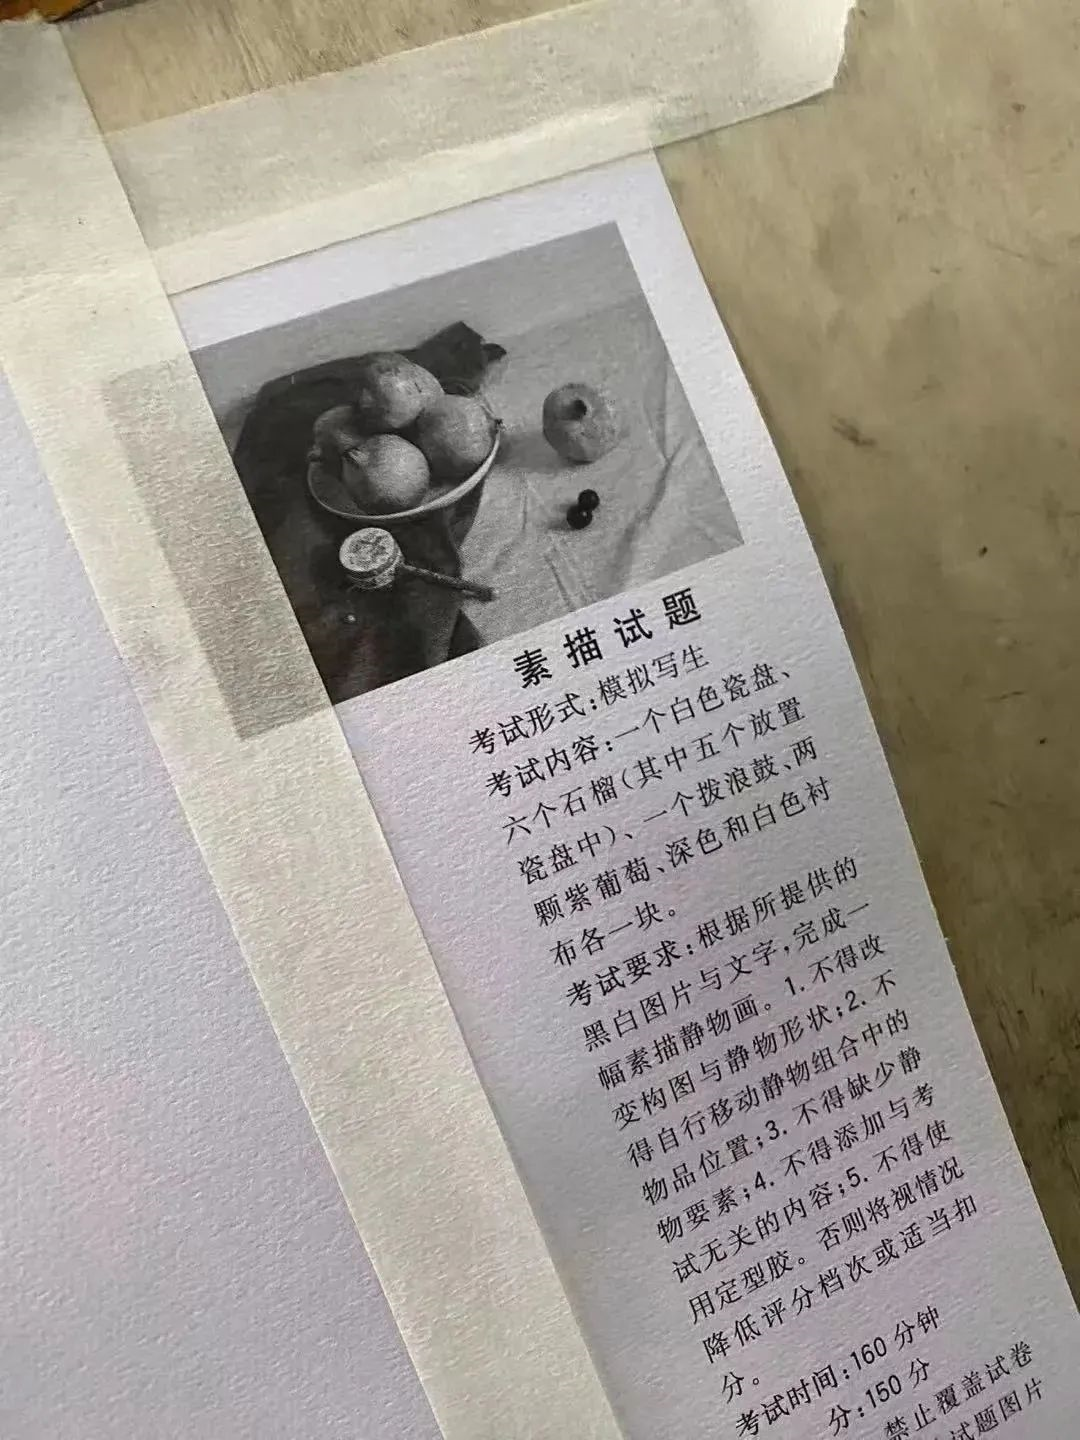 素描试题
考试形式:模拟写生
考试内容:一个白色瓷盘、
六个石榴(其中五个放置
瓷盘中)、一个拨浪鼓、两
颗紫葡萄、深色和白色衬
布各一块。
考试要求:根据所提供的
黑白图片与文字,完成一
幅素描静物画。1.不得改
变构图与静物形状;2.不
得自行移动静物组合中的
物品位置;3.不得缺少静
物要素;4.不得添加与考
试无关的内容;5.不得使
用定型胶。否则将视情况
降低评分档次或适当扣
分。
考试时间:160分钟
分:150分
禁止覆盖试卷
试题图片